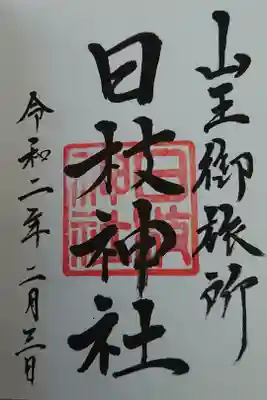 山王御旅所
日枝神社
令和二年 二月三日
日枝神社